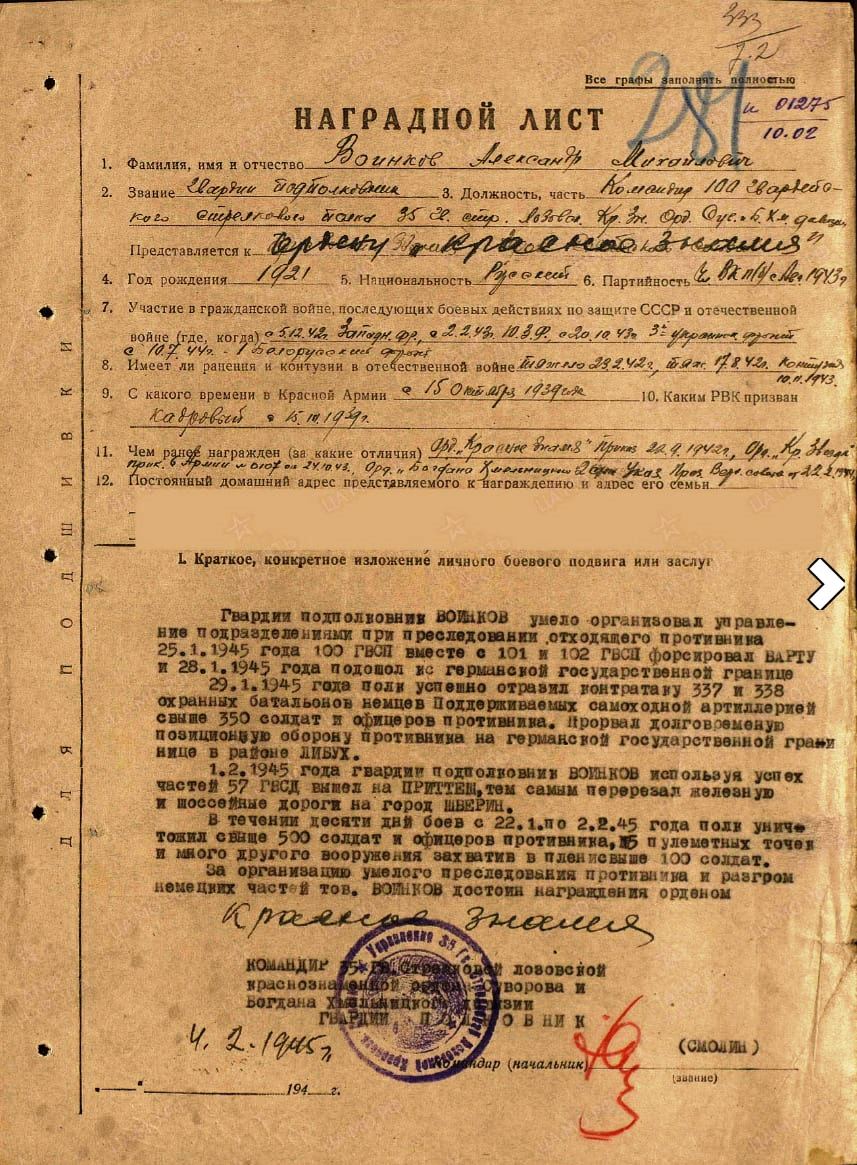 333
7.2
Все графы заполнять полностью
281
и 01275
10.02
НАГРАДНОЙ ЛИСТ
1. Фамилия, имя и отчество Воинков Александр Михайлович
2. Звание Гвардии подполковник 3. Должность, часть Командир 100 Гвардейс-
кого стрелкового полка 35 Гв. стр. Лозовск. Кр. Зн. Орд. Сув. и Б. Хм. дивизии
Представляется к ордену „Красное знамя"
4. Год рождения 1921 5. Национальность Русский 6. Партийность Чл. ВКП(б) с 1943г
7. Участие в гражданской войне, последующих боевых действиях по защите СССР и отечественной
войне (где, когда) с 5.12.42г. Западн. фр., с 2.2.43г. Ю.З.Ф. с 20.10.43г. 3й украинск. фронт
с 10.7.44г. - 1 Белорусский фронт
8. Имеет ли ранения и контузии в отечественной войне тяжело 23.2.42г., тяж. 17.8.42г. контузия
10.11.1943.
9. С какого времени в Красной Армии с 15 Октября 1939 года 10. Каким РВК призван
Кадровый с 15.10.1939г.
11. Чем ранее награжден (за какие отличия) Орд. „Красное знамя" Приказ 22.9.1942г., Орд. „Кр. Звезда"
прик. 6 Армии от 24.10.43, Орд. „Богдана Хмельницкого 2 Указ През. Верх. совета от 22.2.1944
12. Постоянный домашний адрес представляемого к награждению и адрес его семьи
ДЛЯ ПОДШИВКИ
I. Краткое, конкретное изложение личного боевого подвига или заслуг
Гвардии подполковник ВОИНКОВ умело организовал управле-
ние подразделениями при преследовании отходящего противника
25.1.1945 года 100 ГВСП вместе с 101 и 102 ГВСП форсировал ВАРТУ
и 28.1.1945 года подошол кс германской государственной границе
29.1.1945 года полк успешно отразил контратаку 337 и 338
охранных батальонов немцев Поддерживаемых самоходной артиллерией
свыше 350 солдат и офицеров противника. Прорвал долговременую
позиционную оборону противника на германской государственной грани
нице в районе ЛИБУХ.
1.2.1945 года гвардии подполковник ВОИНКОВ используя успех
частей 57 ГВСД вышел на ПРИТТЕШ, тем самым перерезал железную
и шоссейные дороги на город ШВЕРИН.
В течении десяти дний боев с 22.1.по 2.2.45 года полк унич-
тожил свыше 500 солдат и офицеров противника, 15 пулеметных точек
и много другого вооружения захватив в пленисвыше 100 солдат.
За организацию умелого преследования противника и разгром
немецких частей тов. ВОИНКОВ достоин награждения орденом
Красное знамя
КОМАНДИР 35 ГВ. Стрелковой лозовской
краснознаменной ордена Суворова и
Богдана Хмельницкого дивизии
ГВАРДИИ ПОЛКОВНИК
4.2.1945г. (СМОЛИН)
Командир (начальник)
(звание)
194 г.